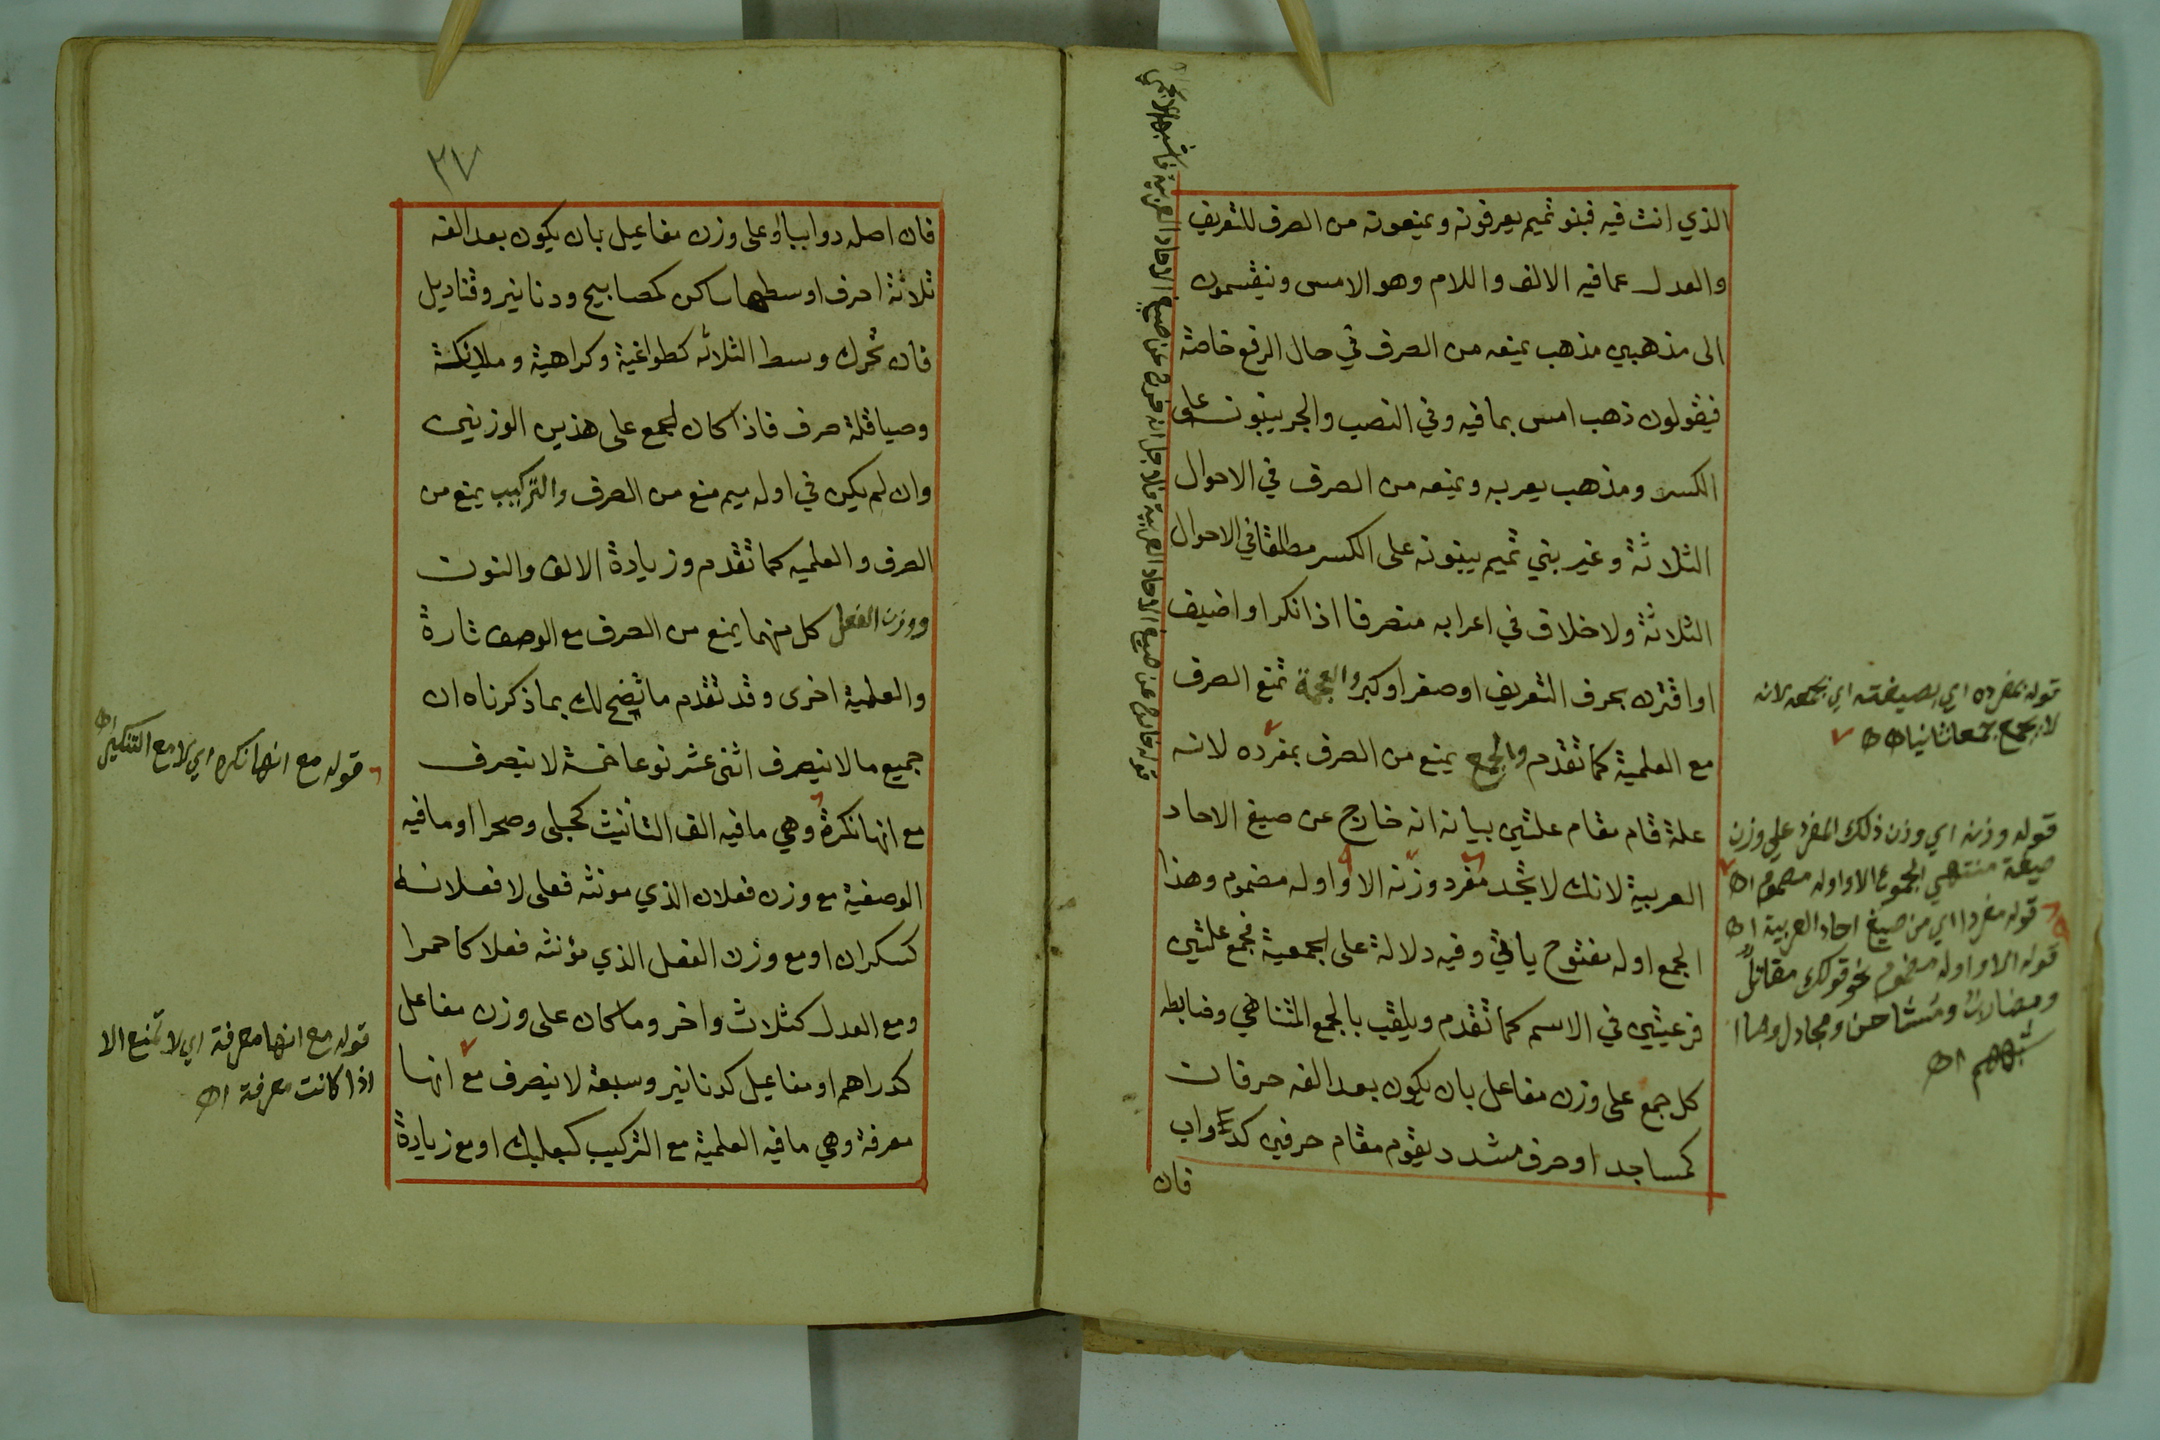 الذي انت فيه فبنو تميم يعرفونه ويمنعونه من الصرف للتعريف
والعدل عما فيه الالف واللام وهو الامس وينقسمون
الى مذهبين مذهب يمنعه من الصرف في حال الرفع خاصة
فيقولون ذهب امس بما فيه وفي النصب والجر يبنون على
الكسر ومذهب يعربه ويمنعه من الصرف في الاحوال
الثلاثة وغير بني تميم يبنونه على الكسر مطلقا في الاحوال
الثلاثة ولا خلاف في اعرابه منصرفا اذا نكر او اضيف
او اقترن بحرف التعريف او صغر او كبر والعجمة تمنع الصرف
مع العلمية كما تقدم والجمع يمنع من الصرف بمفرده لانه
علة قام مقام علتين بيانه انه خارج عن صيغ الاحاد
العربية لانك لا تجد مفرد وزنه الا واوله مضموم وهذا
الجمع اوله مفتوح يافتى وفيه دلالة على الجمعية فجمع علتين
فرعيتين في الاسم كما تقدم ويلقب بالجمع المتناهي وضابطه
كل جمع على وزن مفاعل بان يكون بعد الفه حرفان
كمساجد او حرف مشدد يقوم مقام حرفين كدواب
فان
قوله بمفرده اي بصيغته اي بجمعه لانه
لا يجمع جمعا ثانيا اه
قوله وزنه اي وزن ذلك المفرد على وزن
صيغة منتهى الجموع الا واوله مضموم اه
قوله مفردا اي من صيغ احاد العربية اه
قوله الا واوله مضموم نحو قولك مقاتل
ومضارب ومشاحن ومجادل وما
اشبههم اه
قوله خارج عن صيغ الاحاد العربية فلاجل انه خرج عن صيغ الاحاد العربية فاشبه الاعجمي
٣٧
فان اصله دوابب او على وزن مفاعيل بان يكون بعد الفه
ثلاثة احرف اوسطها ساكن كمصابيح ودنانير وقناديل
فان تحرك وسط الثلاثه كطواغية وكراهية وملايكة
وصياقلة صرف فاذا كان الجمع على هذين الوزنين
وان لم يكن في اوله ميم منع من الصرف والتركيب يمنع من
الصرف والعلميه كما تقدم وزيادة الالف والنون
ووزن الفعل كل منهما يمنع من الصرف مع الوصف تارة
والعلمية اخرى وقد تقدم ما يتضح لك بما ذكرناه ان
جميع مالا ينصرف اثنى عشر نوعا خمسة لا ينصرف
مع انها نكرة وهي ما فيه الف التانيث كحبلى وصحرا او ما فيه
الوصفية مع وزن فعلان الذي مونثه فعلى لا فعلانه
كسكران او مع وزن الفعل الذي مؤنثه فعلا كاحمرا
ومع العدل كثلاث واخر وما كان على وزن مفاعل
كدراهم او مفاعيل كدنانير وسبعة لا ينصرف مع انها
معرفة وهي ما فيه العلمية مع التركيب كبعلبك او مع زيادة
قوله مع انها نكره اي لا مع التنكير اه
قوله مع انها معرفة اي لا تمنع الا
اذا كانت معرفة اه